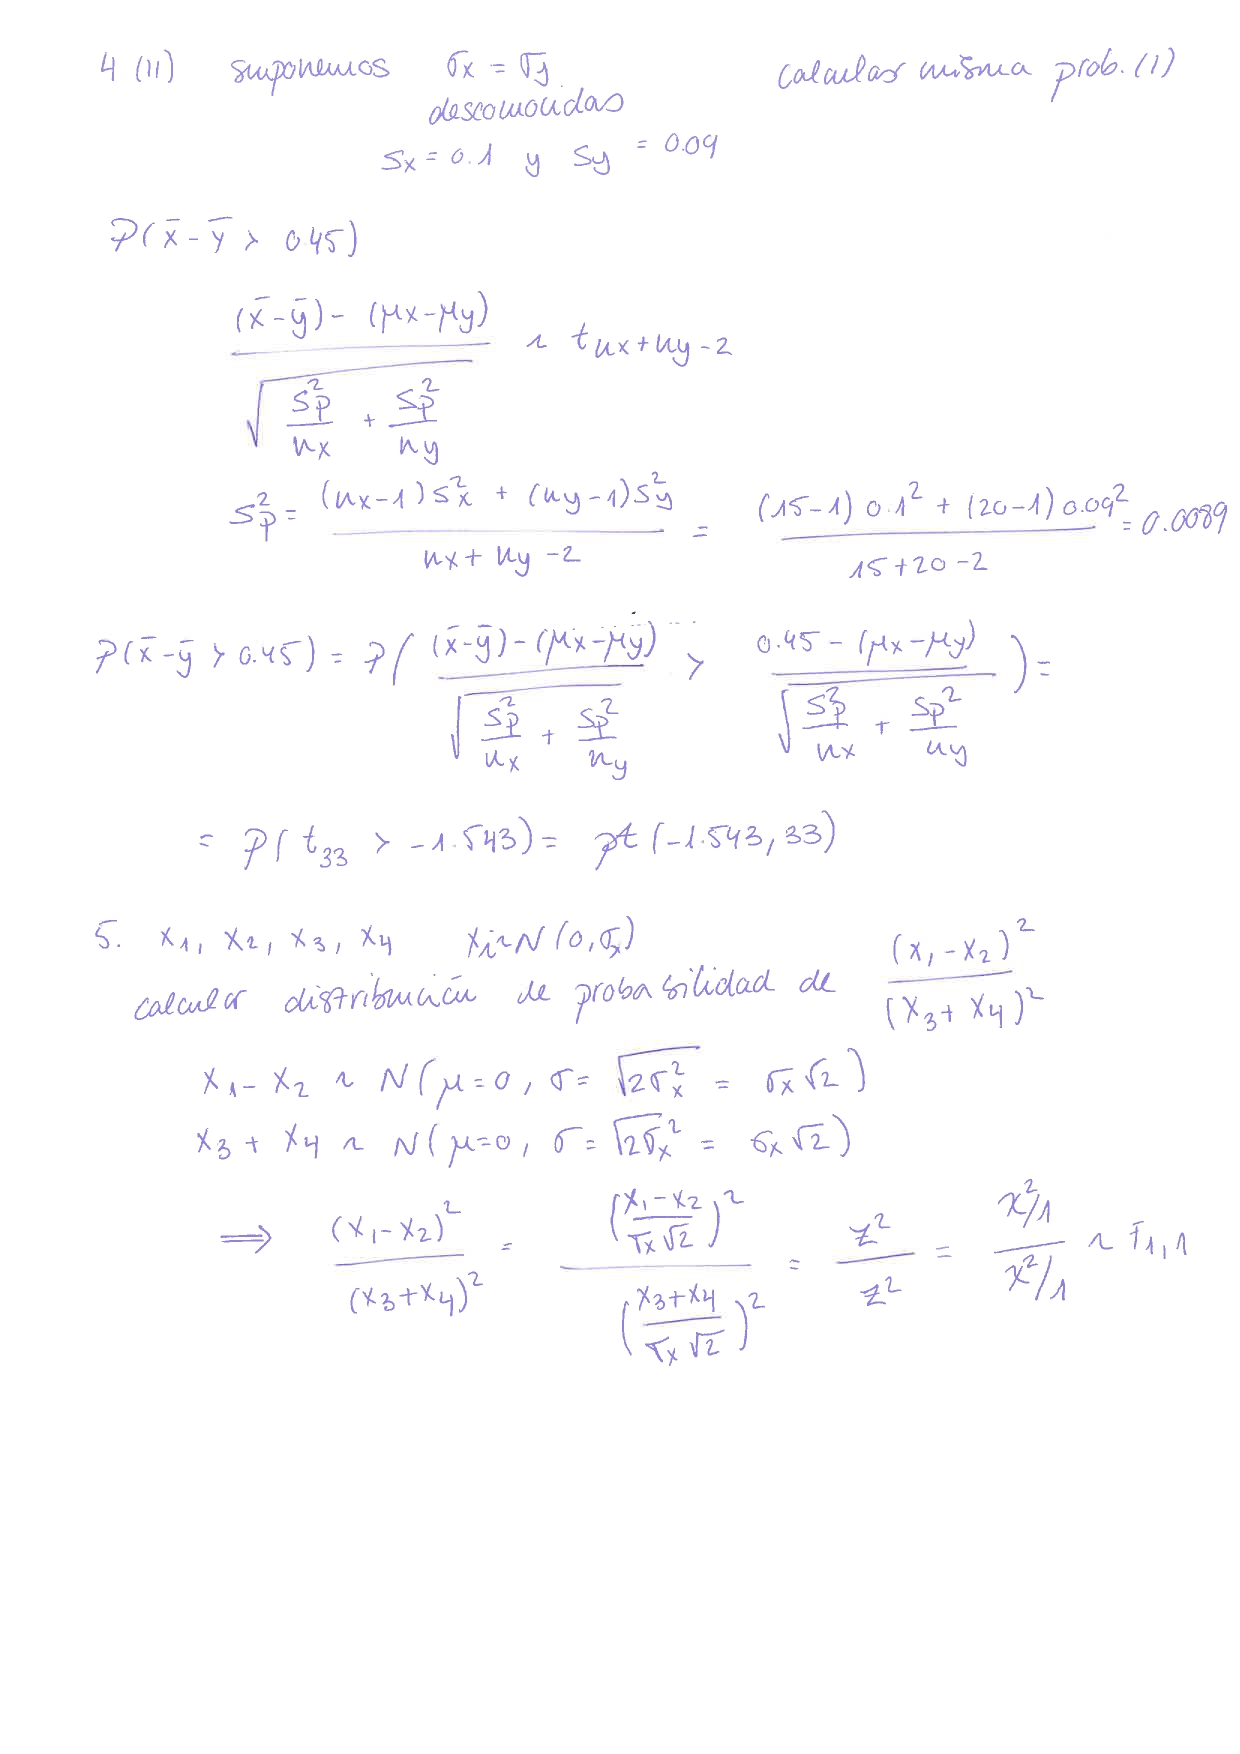 4 (11) suponemos σx = σy calcular misma prob. (1)
desconocidas
Sx = 0.1 y Sy = 0.09
P(x̄ - ȳ > 045)
((x̄ - ȳ) - (μx - μy)) / √(Sp²/nx + Sp²/ny) ~ t nx + ny - 2
Sp² = ((nx - 1)Sx² + (ny - 1)Sy²) / (nx + ny - 2) = ((15-1) 0.1² + (20-1) 0.09²) / (15+20-2) = 0.0089
P(x̄ - ȳ > 0.45) = P( ((x̄ - ȳ) - (μx - μy)) / √(Sp²/nx + Sp²/ny) > (0.45 - (μx - μy)) / √(Sp²/nx + Sp²/ny) ) =
= P( t₃₃ > -1.543) = pt (-1.543, 33)
5. x₁, x₂, x₃, x₄ xi ~ N(0, σx)
calcular distribución de probabilidad de (x₁ - x₂)² / (x₃ + x₄)²
x₁ - x₂ ~ N( μ = 0, σ = √(2σx²) = σx √2 )
x₃ + x₄ ~ N( μ = 0, σ = √(2σx²) = σx √2 )
⟹ (x₁ - x₂)² / (x₃ + x₄)² = ((x₁ - x₂) / (σx √2))² / ((x₃ + x₄) / (σx √2))² = z² / z² = (χ²/1) / (χ²/1) ~ F₁,₁